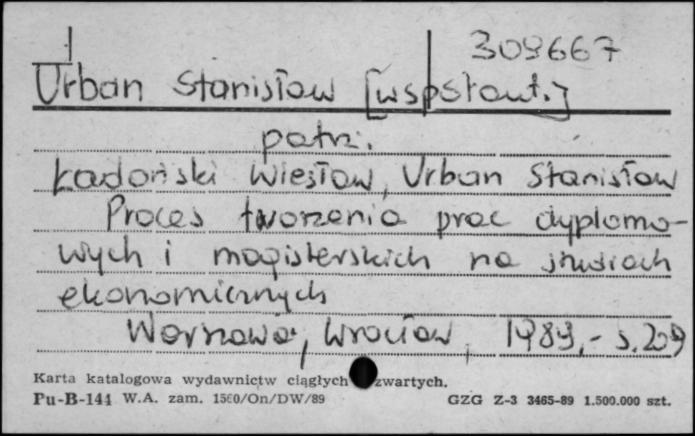 309667
Urban Stanisław [wspstaut.]
patrz.
Ładoński Wiesław, Urban Stanisław
Proces tworzenia prac dyplomo-
wych i magisterskich na studiach
ekonomicznych
Warszawa, Wrocław, 1989,- s. 209
Karta katalogowa wydawnictw ciągłych zwartych.
Pu-B-144 W.A. zam. 1560/On/DW/89 GZG Z-3 3465-89 1.500.000 szt.